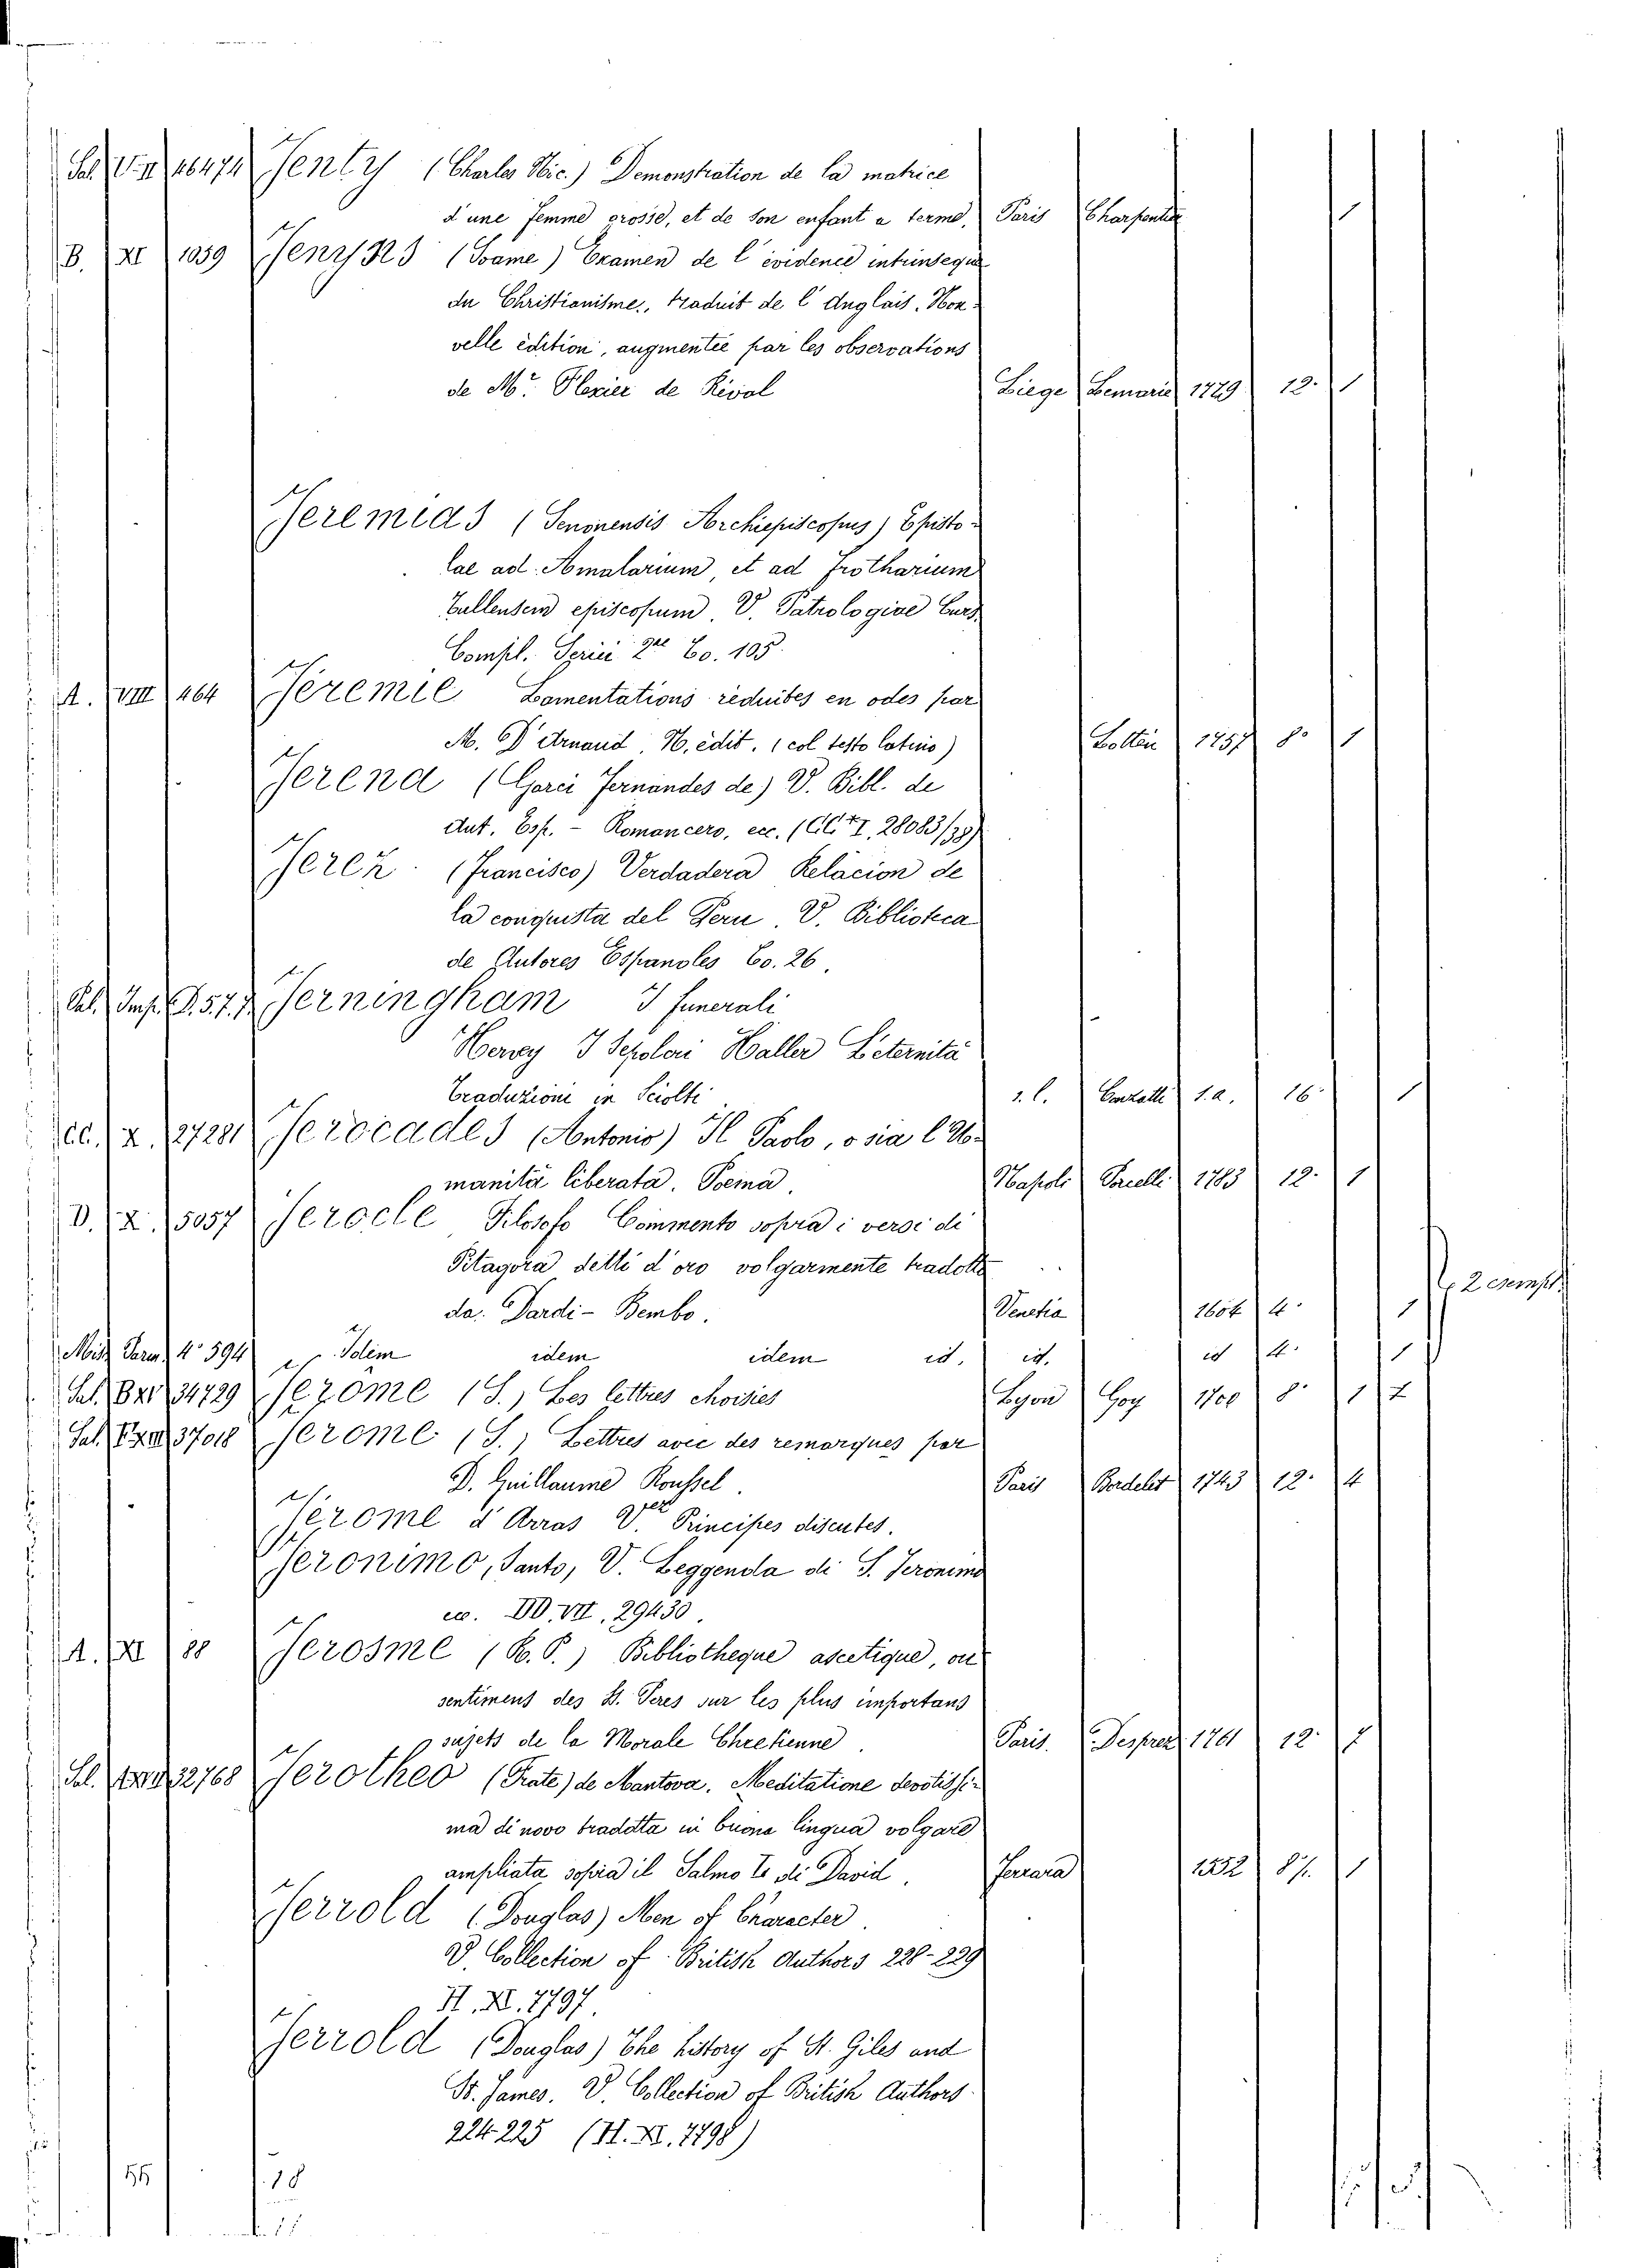 Sal. V. II 16474 Jenty (Charles Nic.) Demonstration de la matrice
d'une femme grosse, et de son enfant a terme, Paris Charpentier 1
B. XI 1059 Jenyns (Soame) Examen de l'évidence intrinseque
du Christianisme, traduit de l'Anglais. Nou-
velle édition, augmentée par les observations
de Mr. de Rival Liege Lemarié 1779 12. 1
Jeremias (Senonensis Archiepiscopus) Episto-
lae ad Amalarium, et ad Frotharium
Tullensem episcopum V. Patrologiae Curs.
Compl. Serie 2ae To. 105.
A. VIII 464 Jérémie Lamentations réduites en odes par
M. D'Arnaud, N. edit. (col testo latino) Lottin 1757 8o 1
Jerena (Garci Fernandes de) V. Bibl. de
Aut. Esp. - Romancero, ecc. (CC. I. 28083/38)
Jerez (Francisco) Verdadera Relacion de
la conquista del Peru V. Biblioteca
de Autores Espanoles To. 26.
Sal. Imp. P. 577 Jerningham I funerali
Hervey I Sepolcri Haller L'eternità
Traduzioni in Sciolti s. l. s. a. 16. 1
CC. X. 27281 Jerocades (Antonio) Il Paolo, o sia l'U-
manità liberata. Poema. Napoli Porcelli 1783 12. 1
D. X. 5057 Jerocle Filosofo Commento sopra i versi di
Pitagora detti d'oro volgarmente tradotto
da Dardi-Bembo. Venetia 1604 4. 1 2 esempl.
Misc. Parm. 4o 594 Idem idem idem id. id. id 4. 1
Sal. 34729 Jerome (S.) Les lettres choisies Lyon Goy 1700 8. 1
Sal. 37018 Jerome (S.) Lettres avec des remarques par
D. Guillaume Roussel. Paris Bordelet 1743 12. 4
Jerome d'Arras V. Principes discutes.
Jeronimo, Santo, V. Leggenda di S. Jeronimo
ec. DD. VII. 29430.
A. XI 88 Jerosme (R. P.) Bibliotheque ascetique, ou
sentimens des S. Peres sur les plus importans
sujets de la Morale Chretienne. Paris. Desprez 1761 12.
Sal. 32768 Jerotheo (Frate) de Mantova. Meditatione devotissi-
ma di novo tradotta in buona lingua volgare
ampliata sopra il Salmo Lo di David. Ferrara 1552 8o. 1
Jerrold (Douglas) Men of Character.
V. Collection of British Authors 228-229
H. XI. 7797.
Jerrold (Douglas) The history of St. Giles and
St. James. V. Collection of British Authors
224-225 (H. XI. 7798)
18